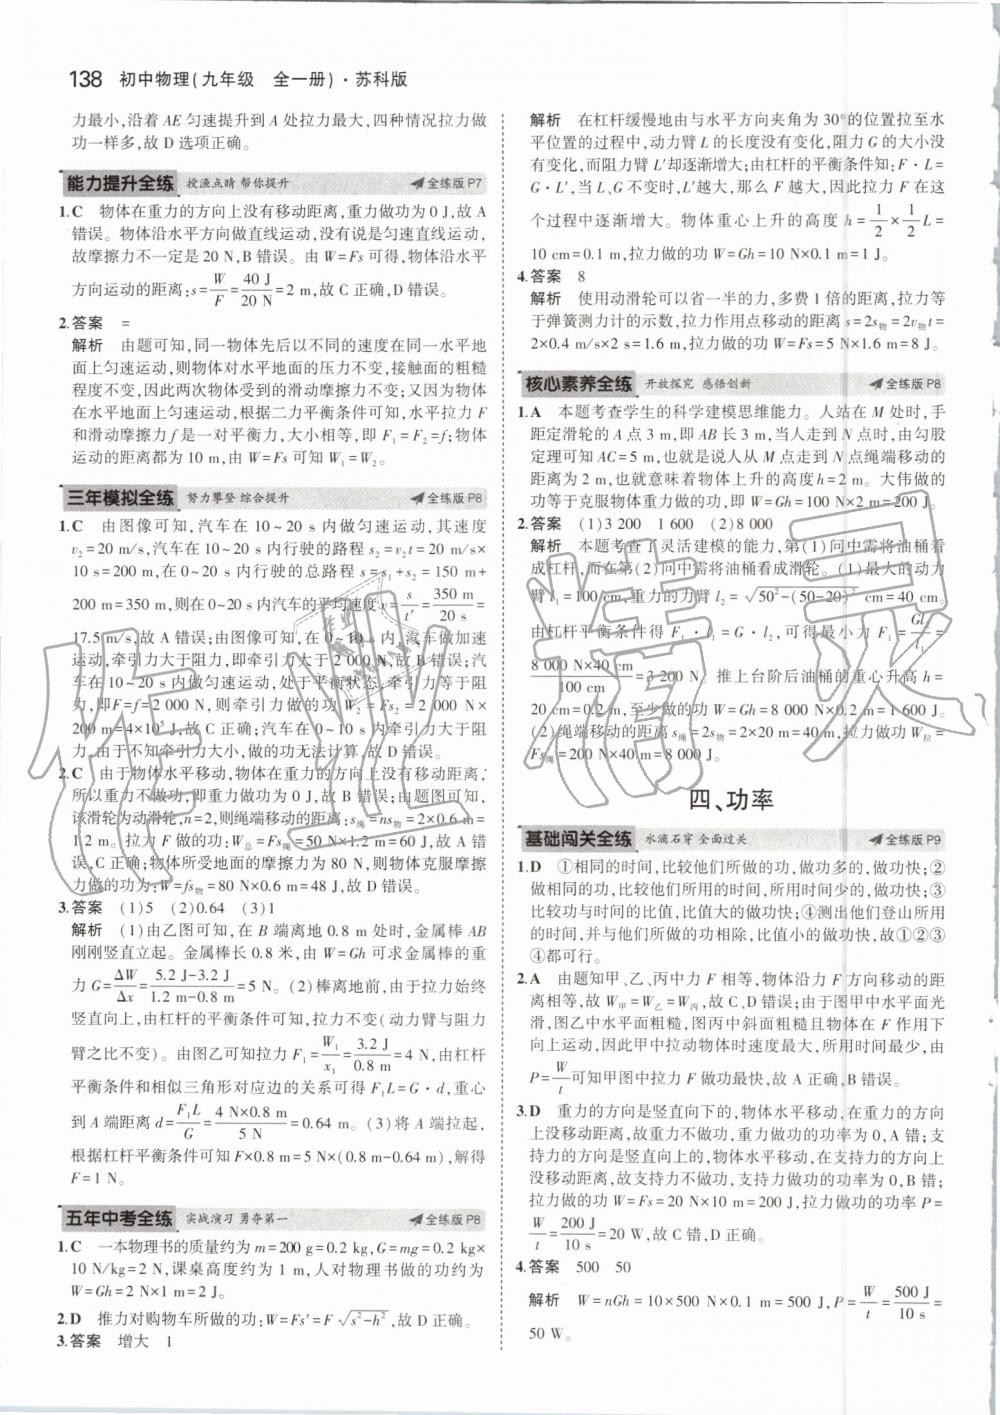 138 初中物理(九年级 全一册)·苏科版
力最小,沿着 AE 匀速提升到 A 处拉力最大,四种情况拉力做
功一样多,故 D 选项正确。
能力提升全练 授渔点睛 帮你提升 全练版 P7
1.C 物体在重力的方向上没有移动距离,重力做功为 0 J,故 A
错误。物体沿水平方向做直线运动,没有说是匀速直线运动,
故摩擦力不一定是 20 N,B 错误。由 W=Fs 可得,物体沿水平
方向运动的距离:s=W/F=40 J/20 N=2 m,故 C 正确,D 错误。
2.答案 =
解析 由题可知,同一物体先后以不同的速度在同一水平地
面上运动,则物体对水平地面的压力不变,接触面的粗糙
程度不变,因此两次物体受到的滑动摩擦力不变;又因为物体
在水平地面上匀速运动,根据二力平衡条件可知,水平拉力 F
和滑动摩擦力 f 是一对平衡力,大小相等,即 F₁=F₂=f;物体
运动的距离都为 10 m,由 W=Fs 可知 W₁=W₂。
三年模拟全练 努力攀登 综合提升 全练版 P8
1.C 由图像可知,汽车在 10~20 s 内做匀速运动,其速度
v₂=20 m/s,汽车在 10~20 s 内行驶的路程 s₂=v₂t=20 m/s×
10 s=200 m,在 0~20 s 内行驶的总路程 s=s₁+s₂=150 m+
200 m=350 m,则在 0~20 s 内汽车的平均速度 v=s/t=350 m/20 s=
17.5 m/s,故 A 错误;由图像可知,在 0~10 s 内,汽车做加速
运动,牵引力大于阻力,即牵引力大于 2 000 N,故 B 错误;汽
车在 10~20 s 内做匀速运动,处于平衡状态,牵引力等于阻
力,即F=f=2 000 N,则牵引力做的功 W₂=Fs₂=2 000 N×
200 m=4×10⁵ J,故 C 正确;汽车在 0~10 s 内牵引力大于阻
力,由于不知牵引力大小,做的功无法计算,故 D 错误。
2.C 由于物体水平移动,物体在重力的方向上没有移动距离,
所以重力不做功,即重力做功为 0 J,故 B 错误;由题图可知,
该滑轮为动滑轮,n=2,则绳端移动的距离:s绳=ns物=2×0.6 m=
1.2 m,拉力 F 做的功:W总=Fs绳=50 N×1.2 m=60 J,故 A、D
错误;物体所受地面的摩擦力为 80 N,则物体克服摩擦
力做的功为:W=fs物=80 N×0.6 m=48 J,故 C 正确。
3.答案 (1)5 (2)0.64 (3)1
解析 (1)由乙图可知,在 B 端离地 0.8 m 处时,金属棒 AB
刚刚竖直立起。金属棒长 0.8 米,由 W=Gh 可求金属棒的重
力 G=ΔW/Δx=(5.2 J-3.2 J)/(1.2 m-0.8 m)=5 N。(2)棒离地前,由于拉力始终
竖直向上,由杠杆的平衡条件可知,拉力不变(动力臂与阻力
臂之比不变)。由图乙可知拉力 F₁=W₁/x₁=3.2 J/0.8 m=4 N,由杠杆
平衡条件和相似三角形对应边的关系可得 F₁L=G·d,重心
到 A 端距离 d=F₁L/G=(4 N×0.8 m)/5 N=0.64 m。(3)将 A 端拉起,
根据杠杆平衡条件可知 F×0.8 m=5 N×(0.8 m-0.64 m),解得
F=1 N。
五年中考全练 实战演习 勇夺第一 全练版 P8
1.C 一本物理书的质量约为 m=200 g=0.2 kg,G=mg=0.2 kg×
10 N/kg=2 N,课桌高度约为 1 m,人对物理书做的功约为
W=Gh=2 N×1 m=2 J。
2.D 推力对购物车所做的功:W=Fs′=F√(s²-h²),故 D 正确。
3.答案 增大 1
解析 在杠杆缓慢地由与水平方向夹角为 30°的位置拉至水
平位置的过程中,动力臂 L 的长度没有变化,阻力 G 的大小没
有变化,而阻力臂 L′却逐渐增大;由杠杆的平衡条件知:F·L=
G·L′,当 L、G 不变时,L′越大,那么 F 越大,因此拉力 F 在这
个过程中逐渐增大。物体重心上升的高度 h=1/2×1/2L=
10 cm=0.1 m,拉力做的功:W=Gh=10 N×0.1 m=1 J。
4.答案 8
解析 使用动滑轮可以省一半的力,多费 1 倍的距离,拉力等
于弹簧测力计的示数,拉力作用点移动的距离 s=2s物=2v物t=
2×0.4 m/s×2 s=1.6 m,拉力做的功 W=Fs=5 N×1.6 m=8 J。
核心素养全练 开放探究 感悟创新 全练版 P8
1.A 本题考查学生的科学建模思维能力。人站在 M 处时,手
距定滑轮的 A 点 3 m,即 AB 长 3 m,当人走到 N 点时,由勾股
定理可知 AC=5 m,也就是说人从 M 点走到 N 点绳端移动的
距离为 2 m,也就意味着物体上升的高度 h=2 m。大伟做的
功等于克服物体重力做的功,即 W=Gh=100 N×2 m=200 J。
2.答案 (1)3 200 1 600 (2)8 000
解析 本题考查了灵活建模的能力,第(1)问中需将油桶看
成杠杆,而在第(2)问中需将油桶看成滑轮。(1)最大的动力
臂 l₁=100 cm,重力的力臂 l₂=√(50²-(50-20)²) cm=40 cm。
由杠杆平衡条件得 F₁·l₁=G·l₂,可得最小力 F₁=Gl₂/l₁=
(8 000 N×40 cm)/100 cm=3 200 N。推上台阶后油桶的重心升高 h=
20 cm=0.2 m,至少做的功 W=Gh=8 000 N×0.2 m=1 600 J。
(2)绳端移动的距离 s绳=2s物=2×20 m=40 m,拉力做功 W拉=
Fs绳=200 N×40 m=8 000 J。
四、功率
基础闯关全练 水滴石穿 全面过关 全练版 P9
1.D ①相同的时间,比较他们所做的功,做功多的,做功快;②
做相同的功,比较他们所用的时间,所用时间少的,做功快;③
比较功与时间的比值,比值大的做功快;④测出他们登山所用
的时间,并与他们所做的功相除,比值小的做功快,故①②③
④都可行。
2.A 由题知甲、乙、丙中力 F 相等,物体沿力 F 方向移动的距
离相等,故 W甲=W乙=W丙,故 C、D 错误;由于图甲中水平面光
滑,图乙中水平面粗糙,图丙中斜面粗糙且物体在 F 作用下
向上运动,因此甲中拉动物体时速度最大,所用时间最少,由
P=W/t可知甲图中拉力 F 做功最快,故 A 正确,B 错误。
3.D 重力的方向是竖直向下的,物体水平移动,在重力的方向
上没移动距离,故重力不做功,重力做功的功率为 0,A 错;支
持力的方向是竖直向上的,物体水平移动,在支持力的方向上
没移动距离,故支持力不做功,支持力做功的功率为 0,B 错;
拉力做的功 W=Fs=20 N×10 m=200 J,拉力做功的功率 P=
W/t=200 J/10 s=20 W,故 C 错,D 正确。
4.答案 500 50
解析 W=nGh=10×500 N×0.1 m=500 J,P=W/t=500 J/10 s=
50 W。
作业精灵